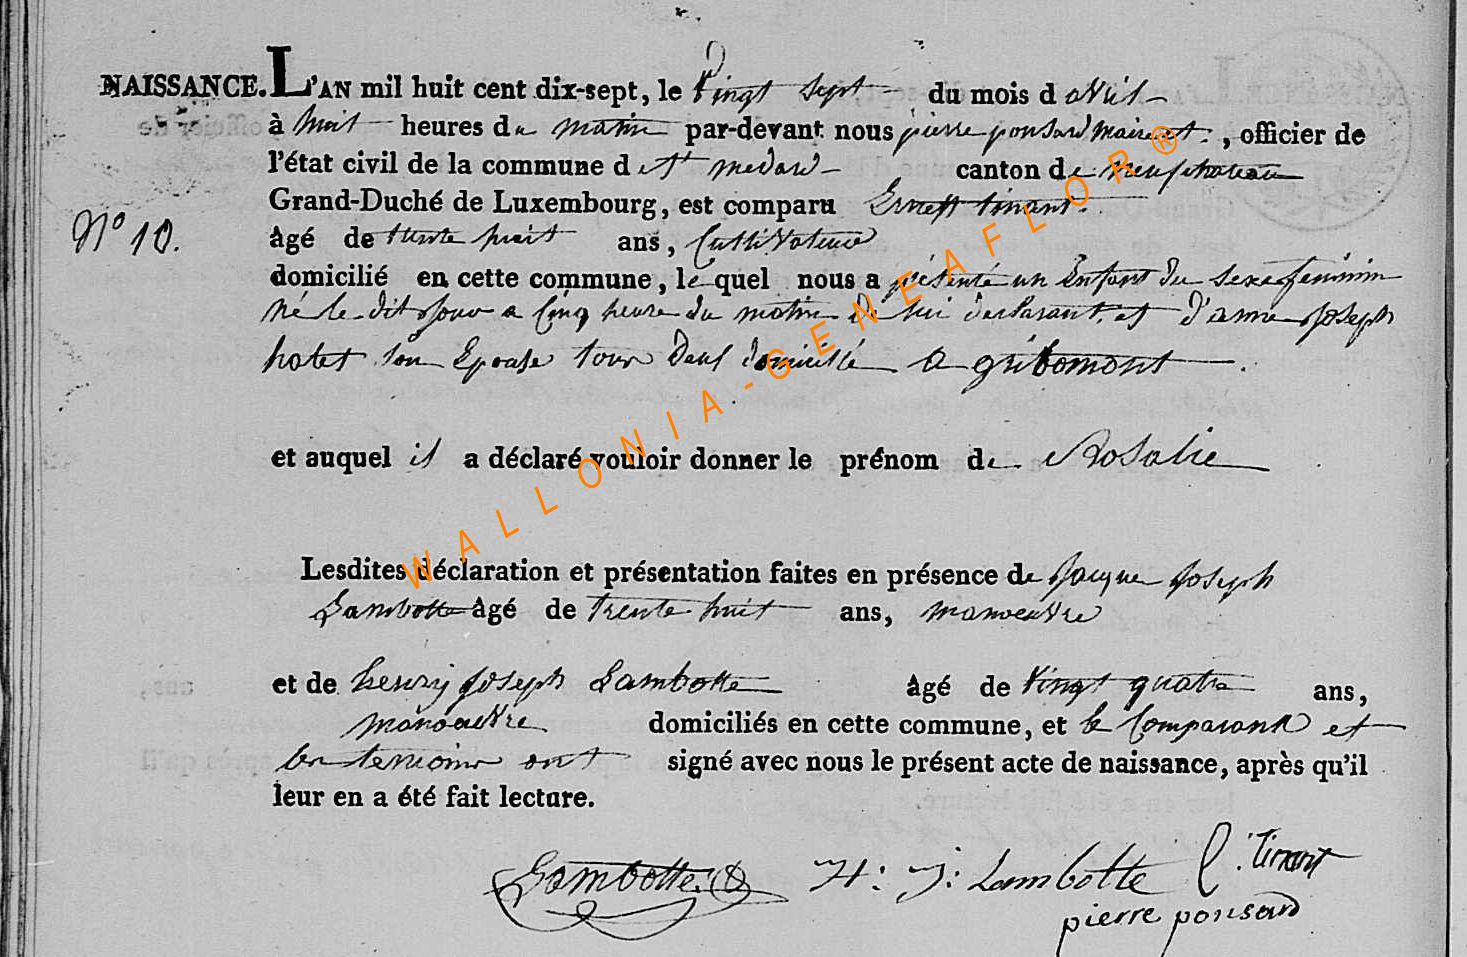 NAISSANCE. L'AN mil huit cent dix-sept, le vingt sept du mois d avril
à huit heures du matin par-devant nous pierre ponsard maire et, officier de
l'état civil de la commune d St medard canton de neufchateau
Grand-Duché de Luxembourg, est comparu Ernest tinant.
N° 10.
âgé de trente huit ans, Cultivateur
domicilié en cette commune, le quel nous a présenté un Enfant du sexe feminin
né le dit jour a Cinq heure du matin De lui declarant, et d'anne joseph
hotet son Epouse tous Deux domicilié a gribomont.
et auquel il a déclaré vouloir donner le prénom de Rosalie
Lesdites déclaration et présentation faites en présence de jacque joseph
Lambotte âgé de trente huit ans, manoeuvre
et de henry joseph Lambotte âgé de vingt quatre ans,
manoeuvre domiciliés en cette commune, et le Comparant et
les temoins ont signé avec nous le présent acte de naissance, après qu'il
leur en a été fait lecture.
Lambotte H: J: Lambotte E: tinant
pierre ponsard
WALLONIA-GENEAFLOR®